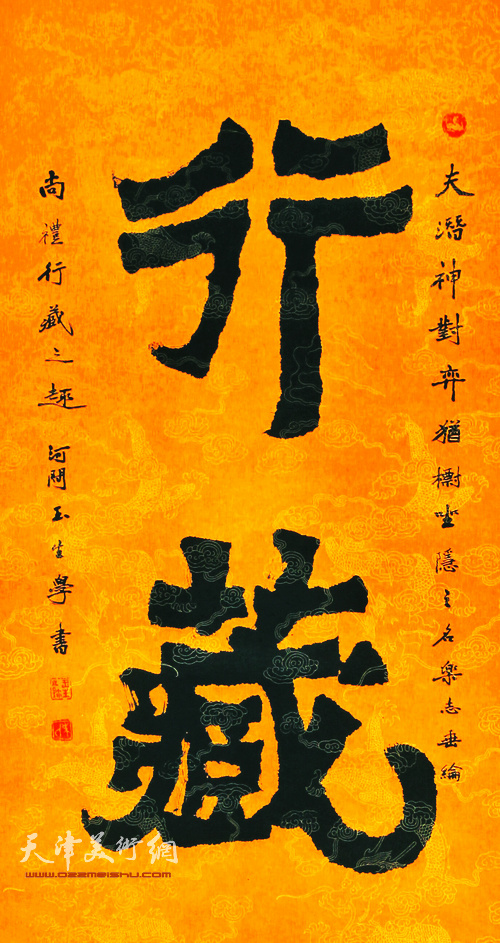 行藏
夫潛神對弈猶標坐隱之名樂志垂綸
尚禮行藏之趣
河間玉生學書
天津美術網
www.022meishu.com